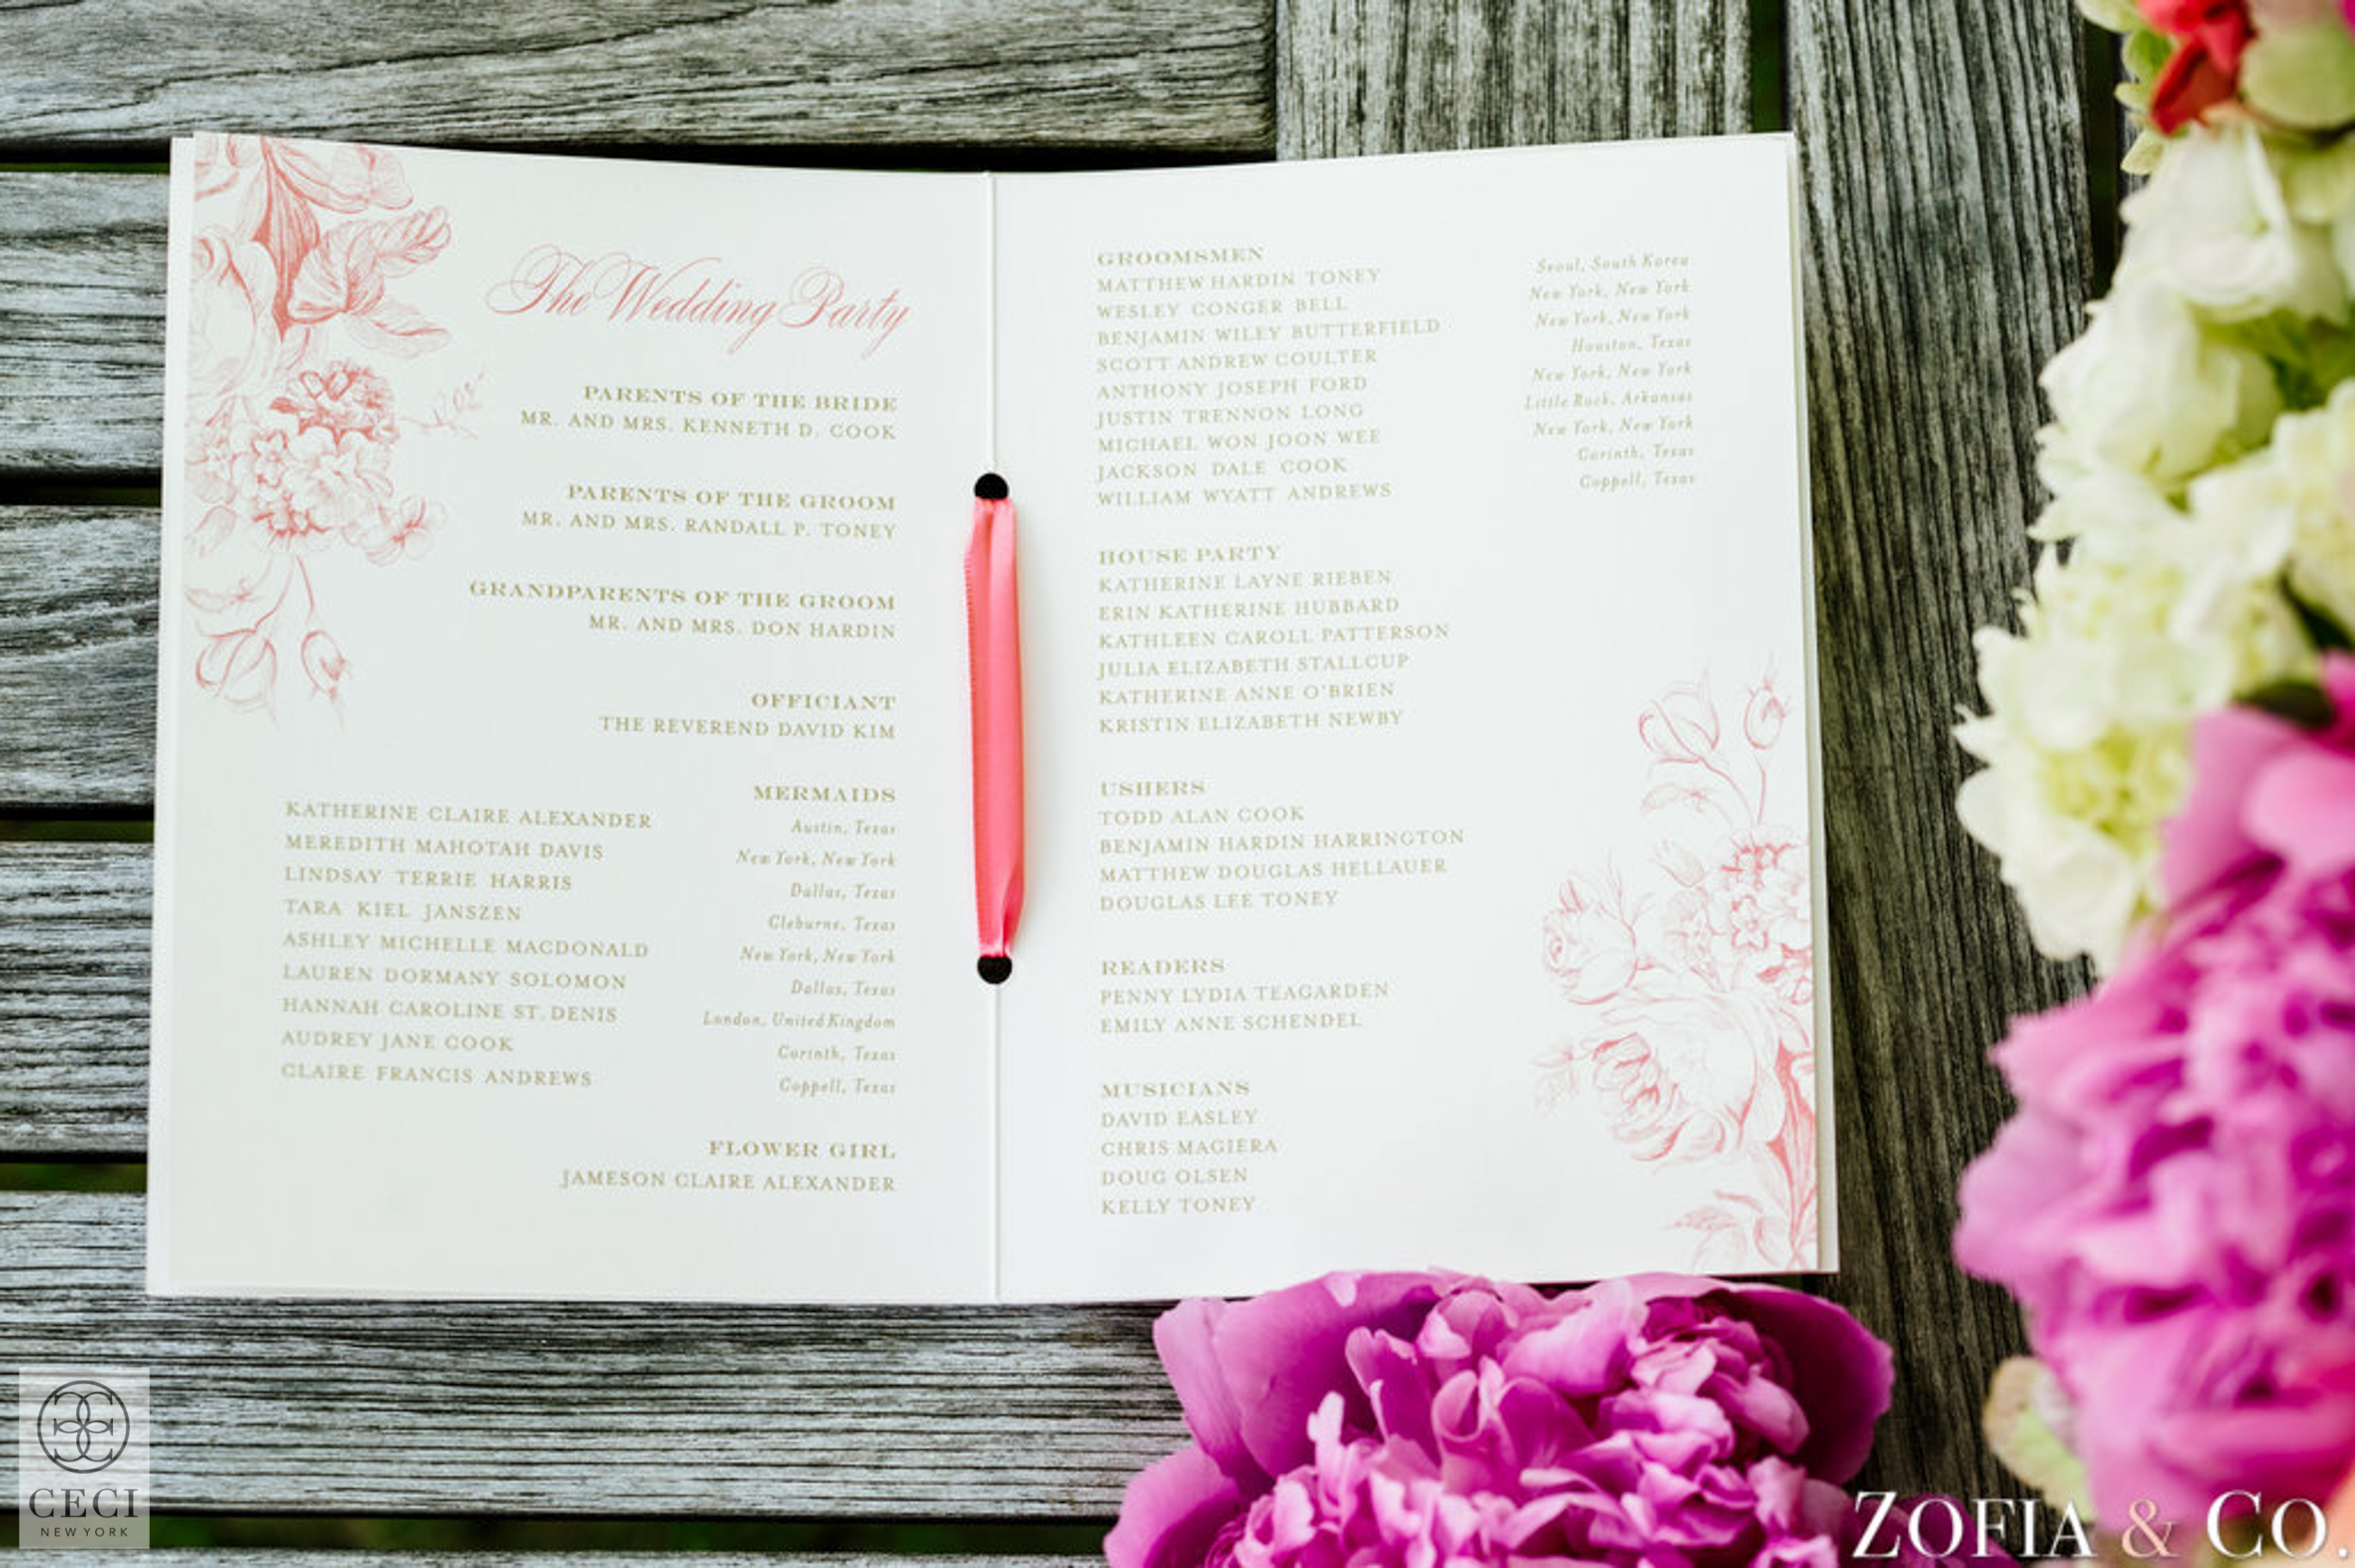 The Wedding Party
PARENTS OF THE BRIDE
MR. AND MRS. KENNETH D. COOK
PARENTS OF THE GROOM
MR. AND MRS. RANDALL P. TONEY
GRANDPARENTS OF THE GROOM
MR. AND MRS. DON HARDIN
OFFICIANT
THE REVEREND DAVID KIM
MERMAIDS
KATHERINE CLAIRE ALEXANDER Austin, Texas
MEREDITH MAHOTAH DAVIS New York, New York
LINDSAY TERRIE HARRIS Dallas, Texas
TARA KIEL JANSZEN Cleburne, Texas
ASHLEY MICHELLE MACDONALD New York, New York
LAUREN DORMANY SOLOMON Dallas, Texas
HANNAH CAROLINE ST. DENIS London, United Kingdom
AUDREY JANE COOK Corinth, Texas
CLAIRE FRANCIS ANDREWS Coppell, Texas
FLOWER GIRL
JAMESON CLAIRE ALEXANDER
GROOMSMEN
MATTHEW HARDIN TONEY Seoul, South Korea
WESLEY CONGER BELL New York, New York
BENJAMIN WILEY BUTTERFIELD New York, New York
SCOTT ANDREW COULTER Houston, Texas
ANTHONY JOSEPH FORD New York, New York
JUSTIN TRENNON LONG Little Rock, Arkansas
MICHAEL WON JOON WEE New York, New York
JACKSON DALE COOK Corinth, Texas
WILLIAM WYATT ANDREWS Coppell, Texas
HOUSE PARTY
KATHERINE LAYNE RIEBEN
ERIN KATHERINE HUBBARD
KATHLEEN CAROLL PATTERSON
JULIA ELIZABETH STALLCUP
KATHERINE ANNE O'BRIEN
KRISTIN ELIZABETH NEWBY
USHERS
TODD ALAN COOK
BENJAMIN HARDIN HARRINGTON
MATTHEW DOUGLAS HELLAUER
DOUGLAS LEE TONEY
READERS
PENNY LYDIA TEAGARDEN
EMILY ANNE SCHENDEL
MUSICIANS
DAVID EASLEY
CHRIS MAGIERA
DOUG OLSEN
KELLY TONEY
CECI
NEW YORK
ZOFIA & CO.